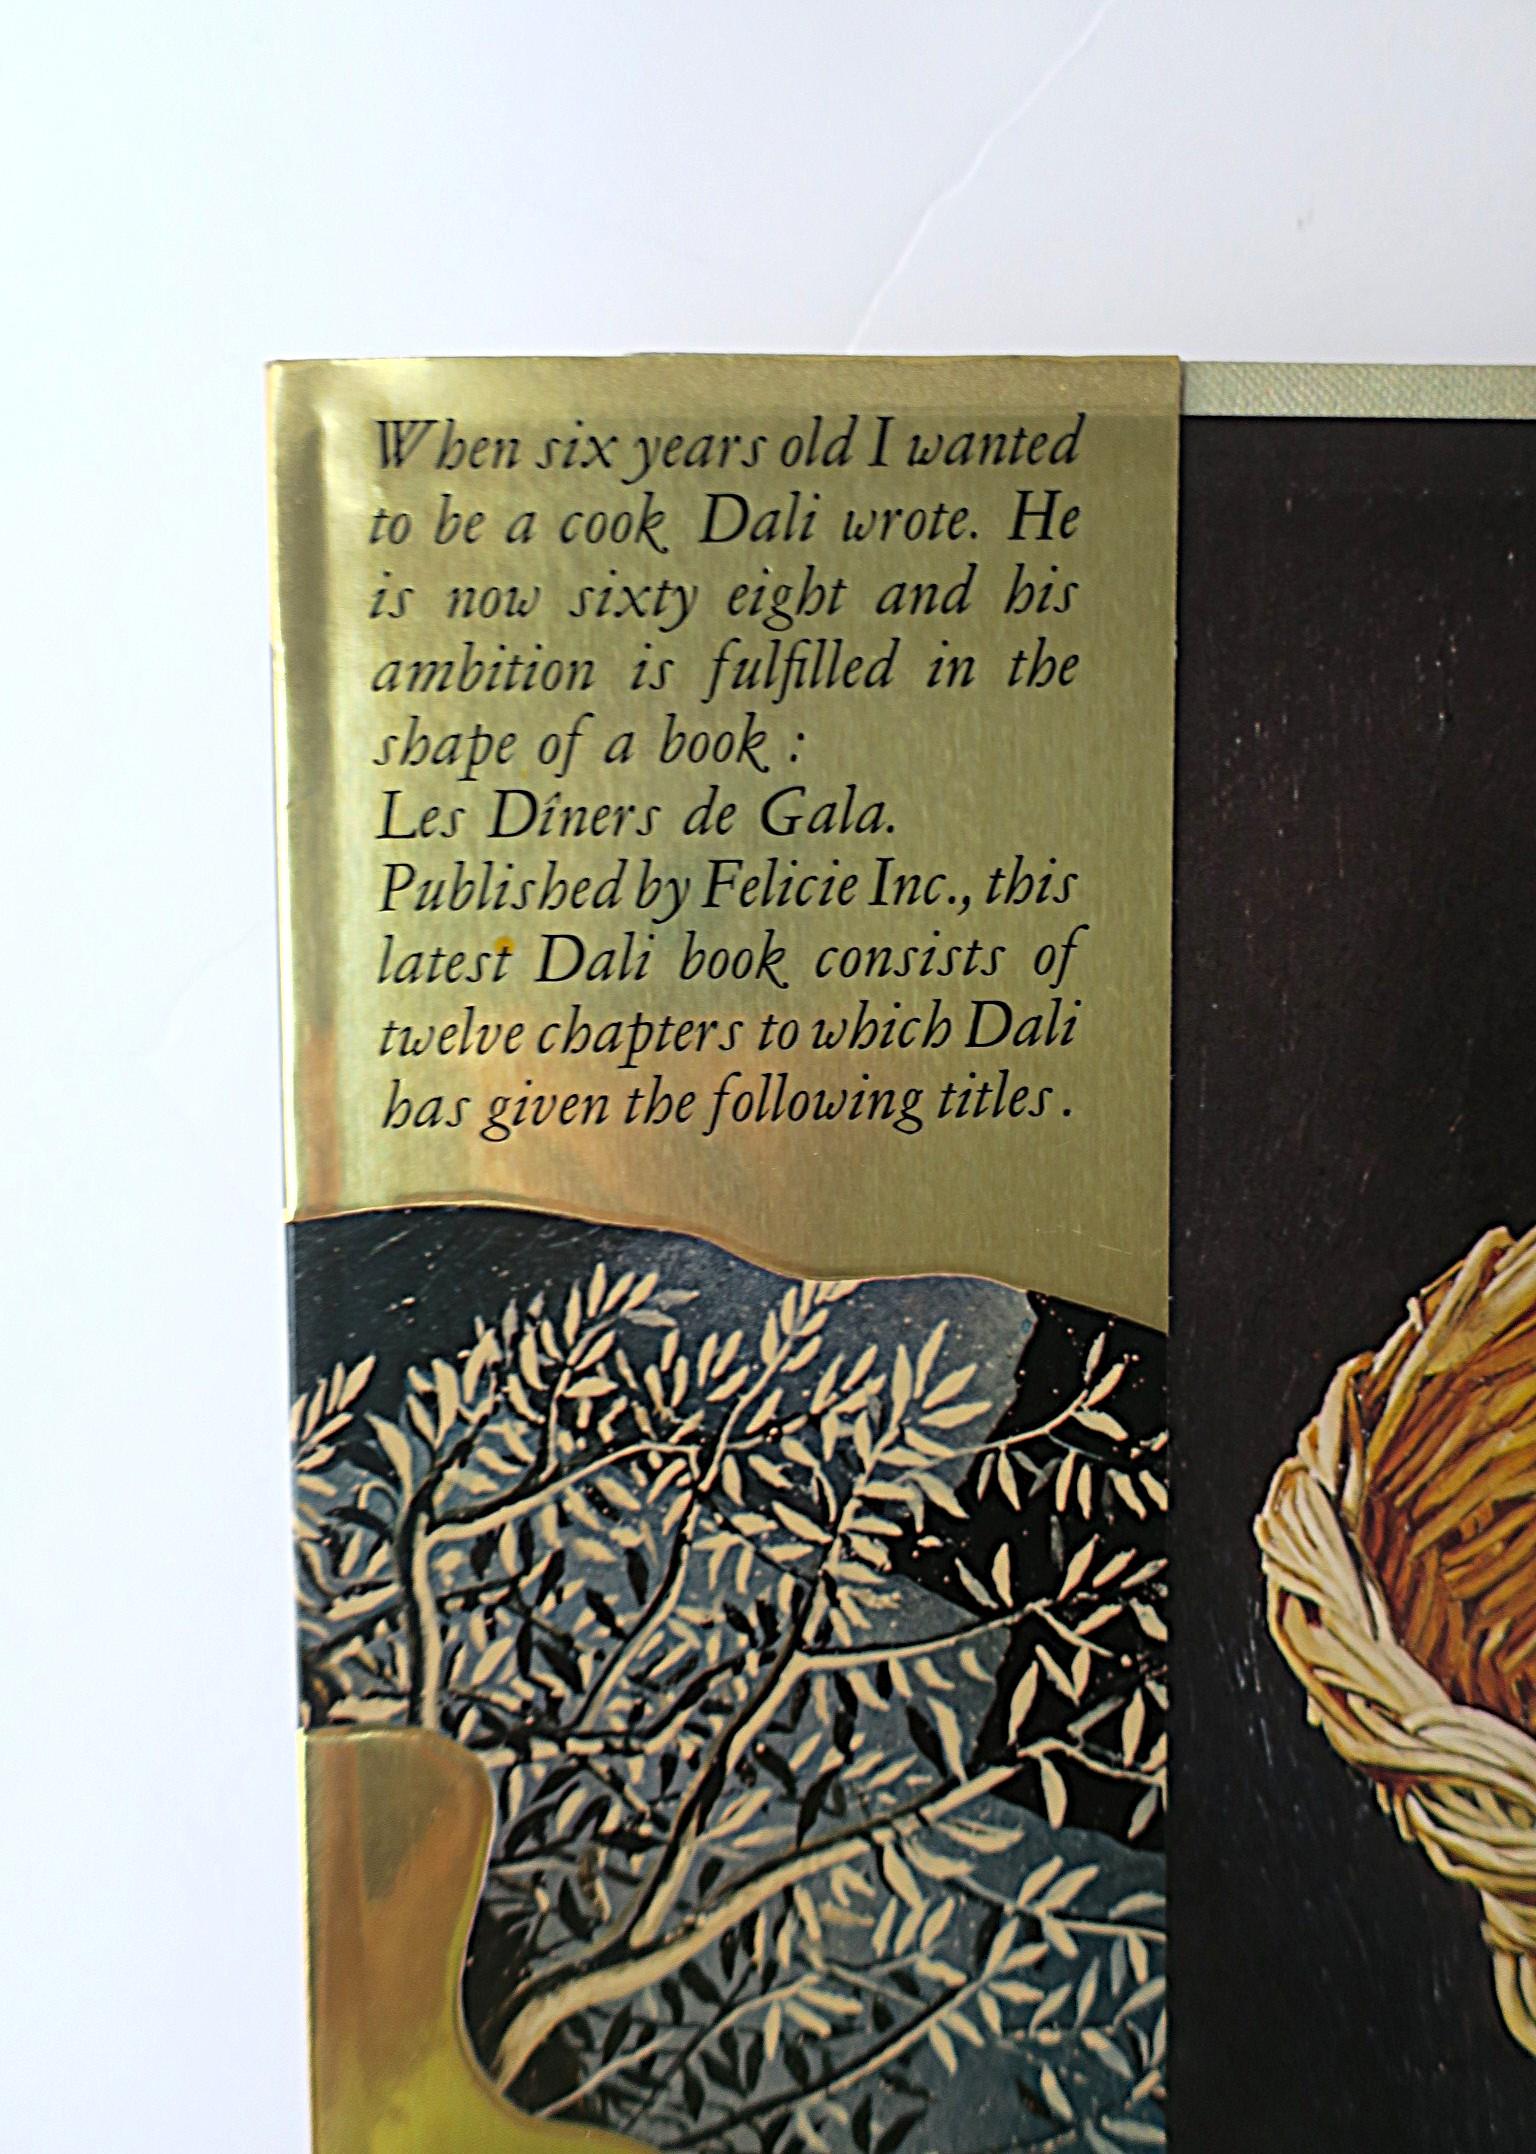 When six years old I wanted
to be a cook Dali wrote. He
is now sixty eight and his
ambition is fulfilled in the
shape of a book :
Les Dîners de Gala.
Published by Felicie Inc., this
latest Dali book consists of
twelve chapters to which Dali
has given the following titles.